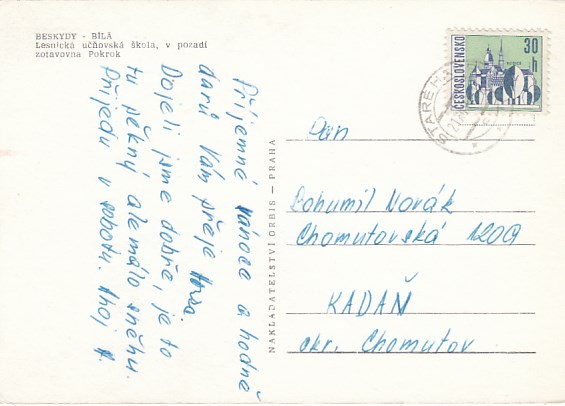 BESKYDY - BÍLÁ
Lesnická učňovská škola, v pozadí
zotavovna Pokrok
Příjemné Vánoce a hodně
darů Vám přeje
Dojeli jsme dobře, je to
tu pěkný ale málo sněhu.
Přijedu v sobotu. Ahoj H.
NAKLADATELSTVÍ ORBIS — PRAHA
ČESKOSLOVENSKO
30
h
STARÉ
Pan
Bohumil Novák
Chomutovská 1209
KADAŇ
okr. Chomutov